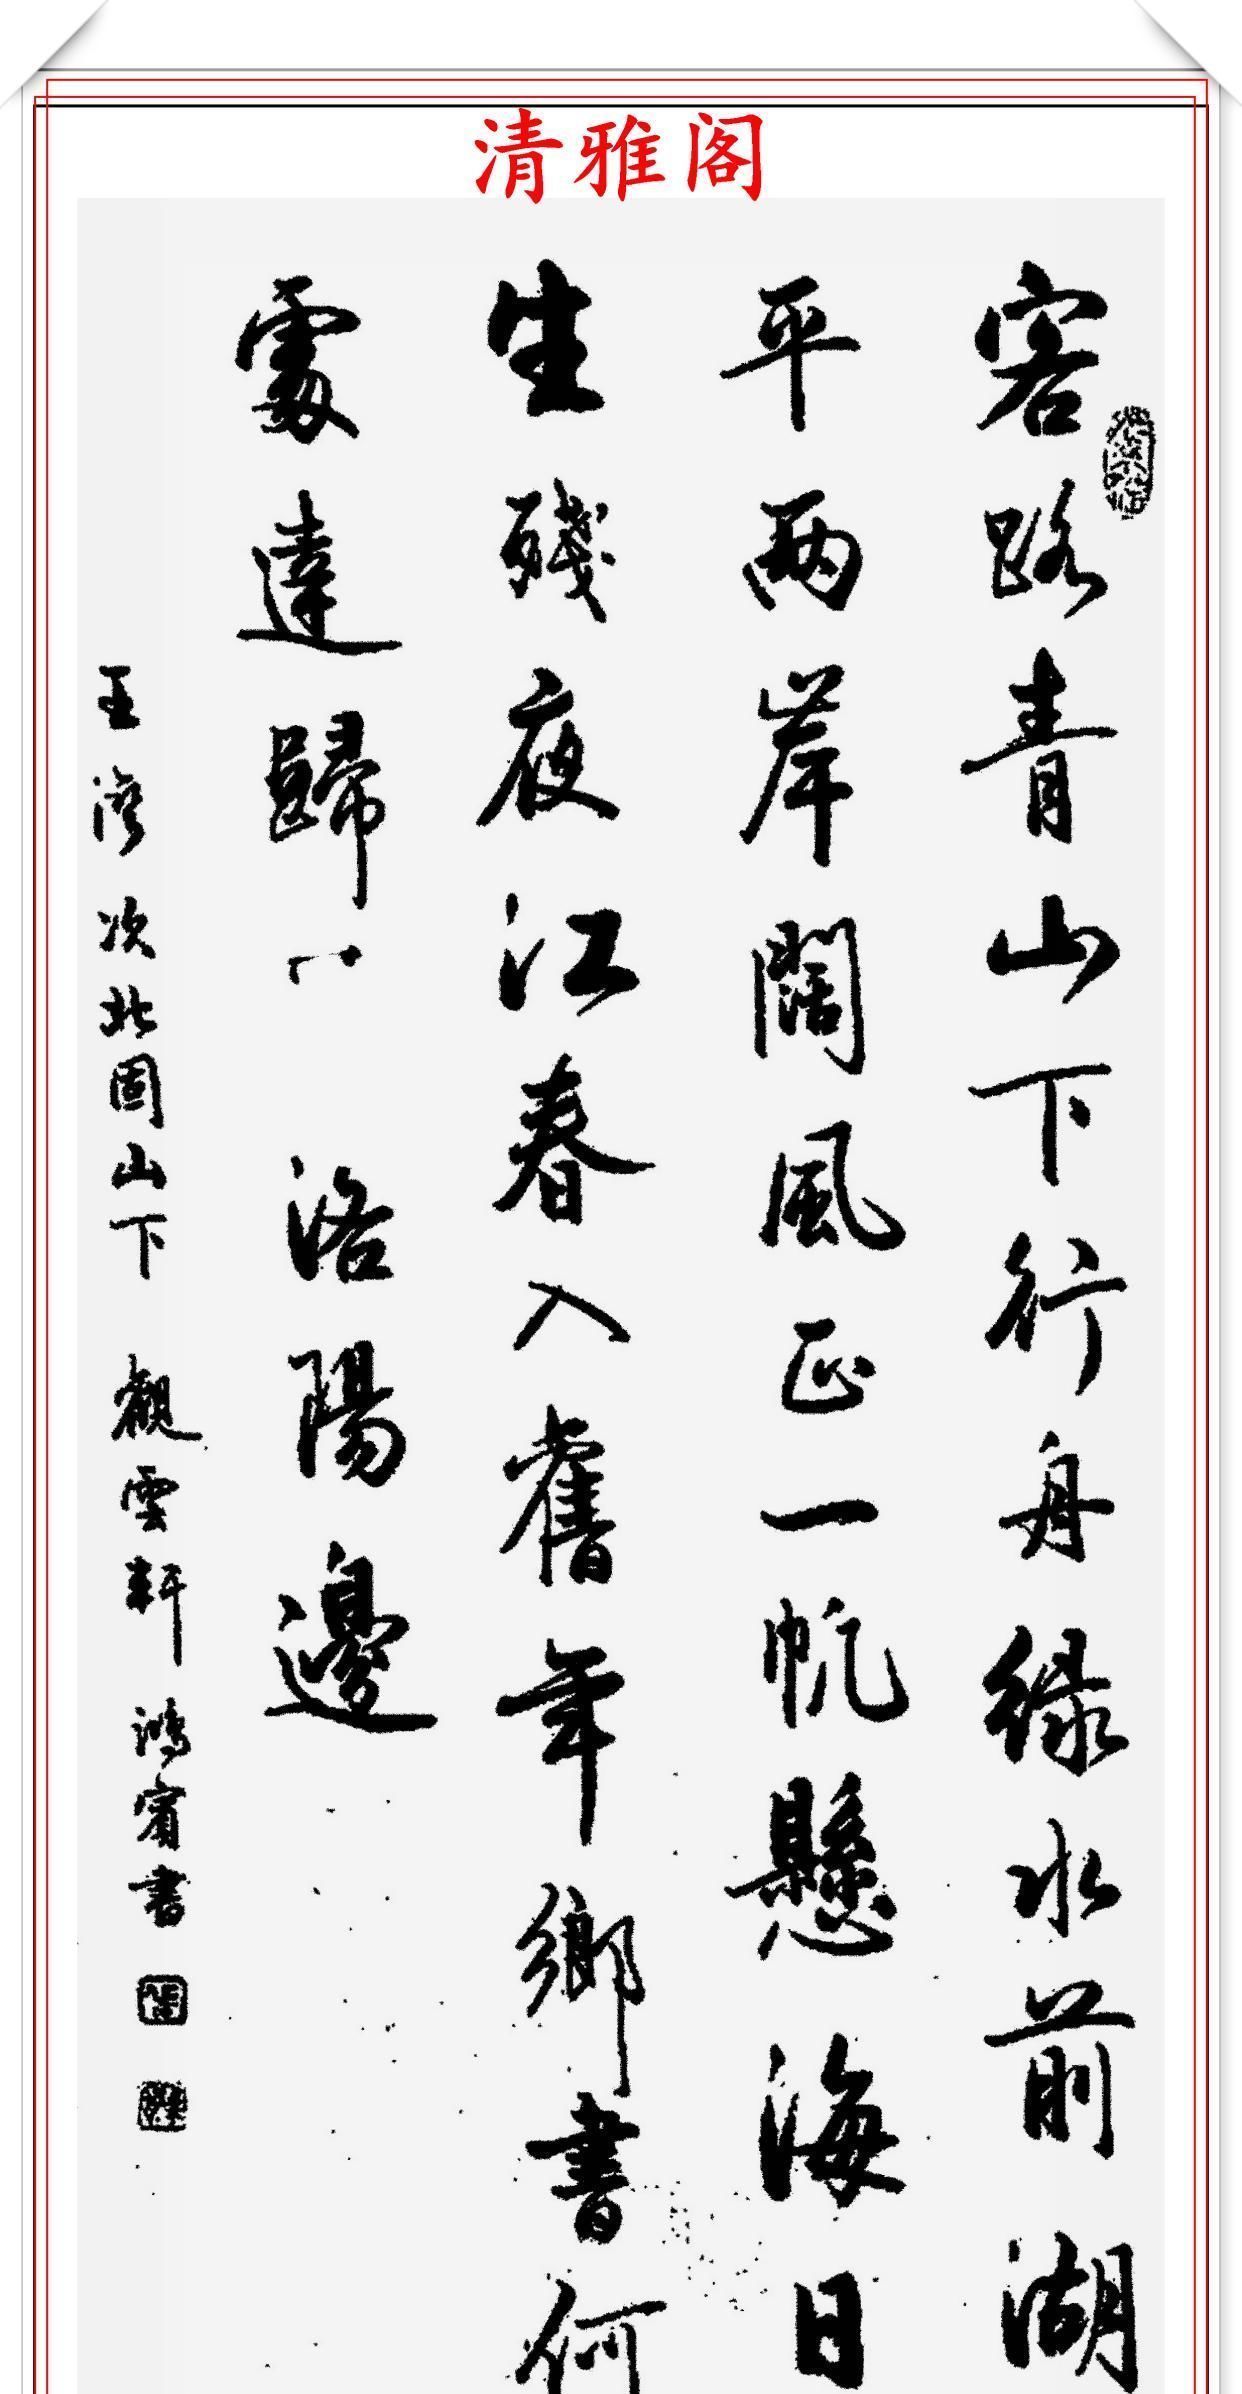 清雅阁
客路青山下行舟绿水前湖
平兩岸闊風正一帆懸海日
生殘夜江春入舊年鄉書何
處達歸 洛陽邊
王灣次北固山下 觀雲軒 鴻賓書